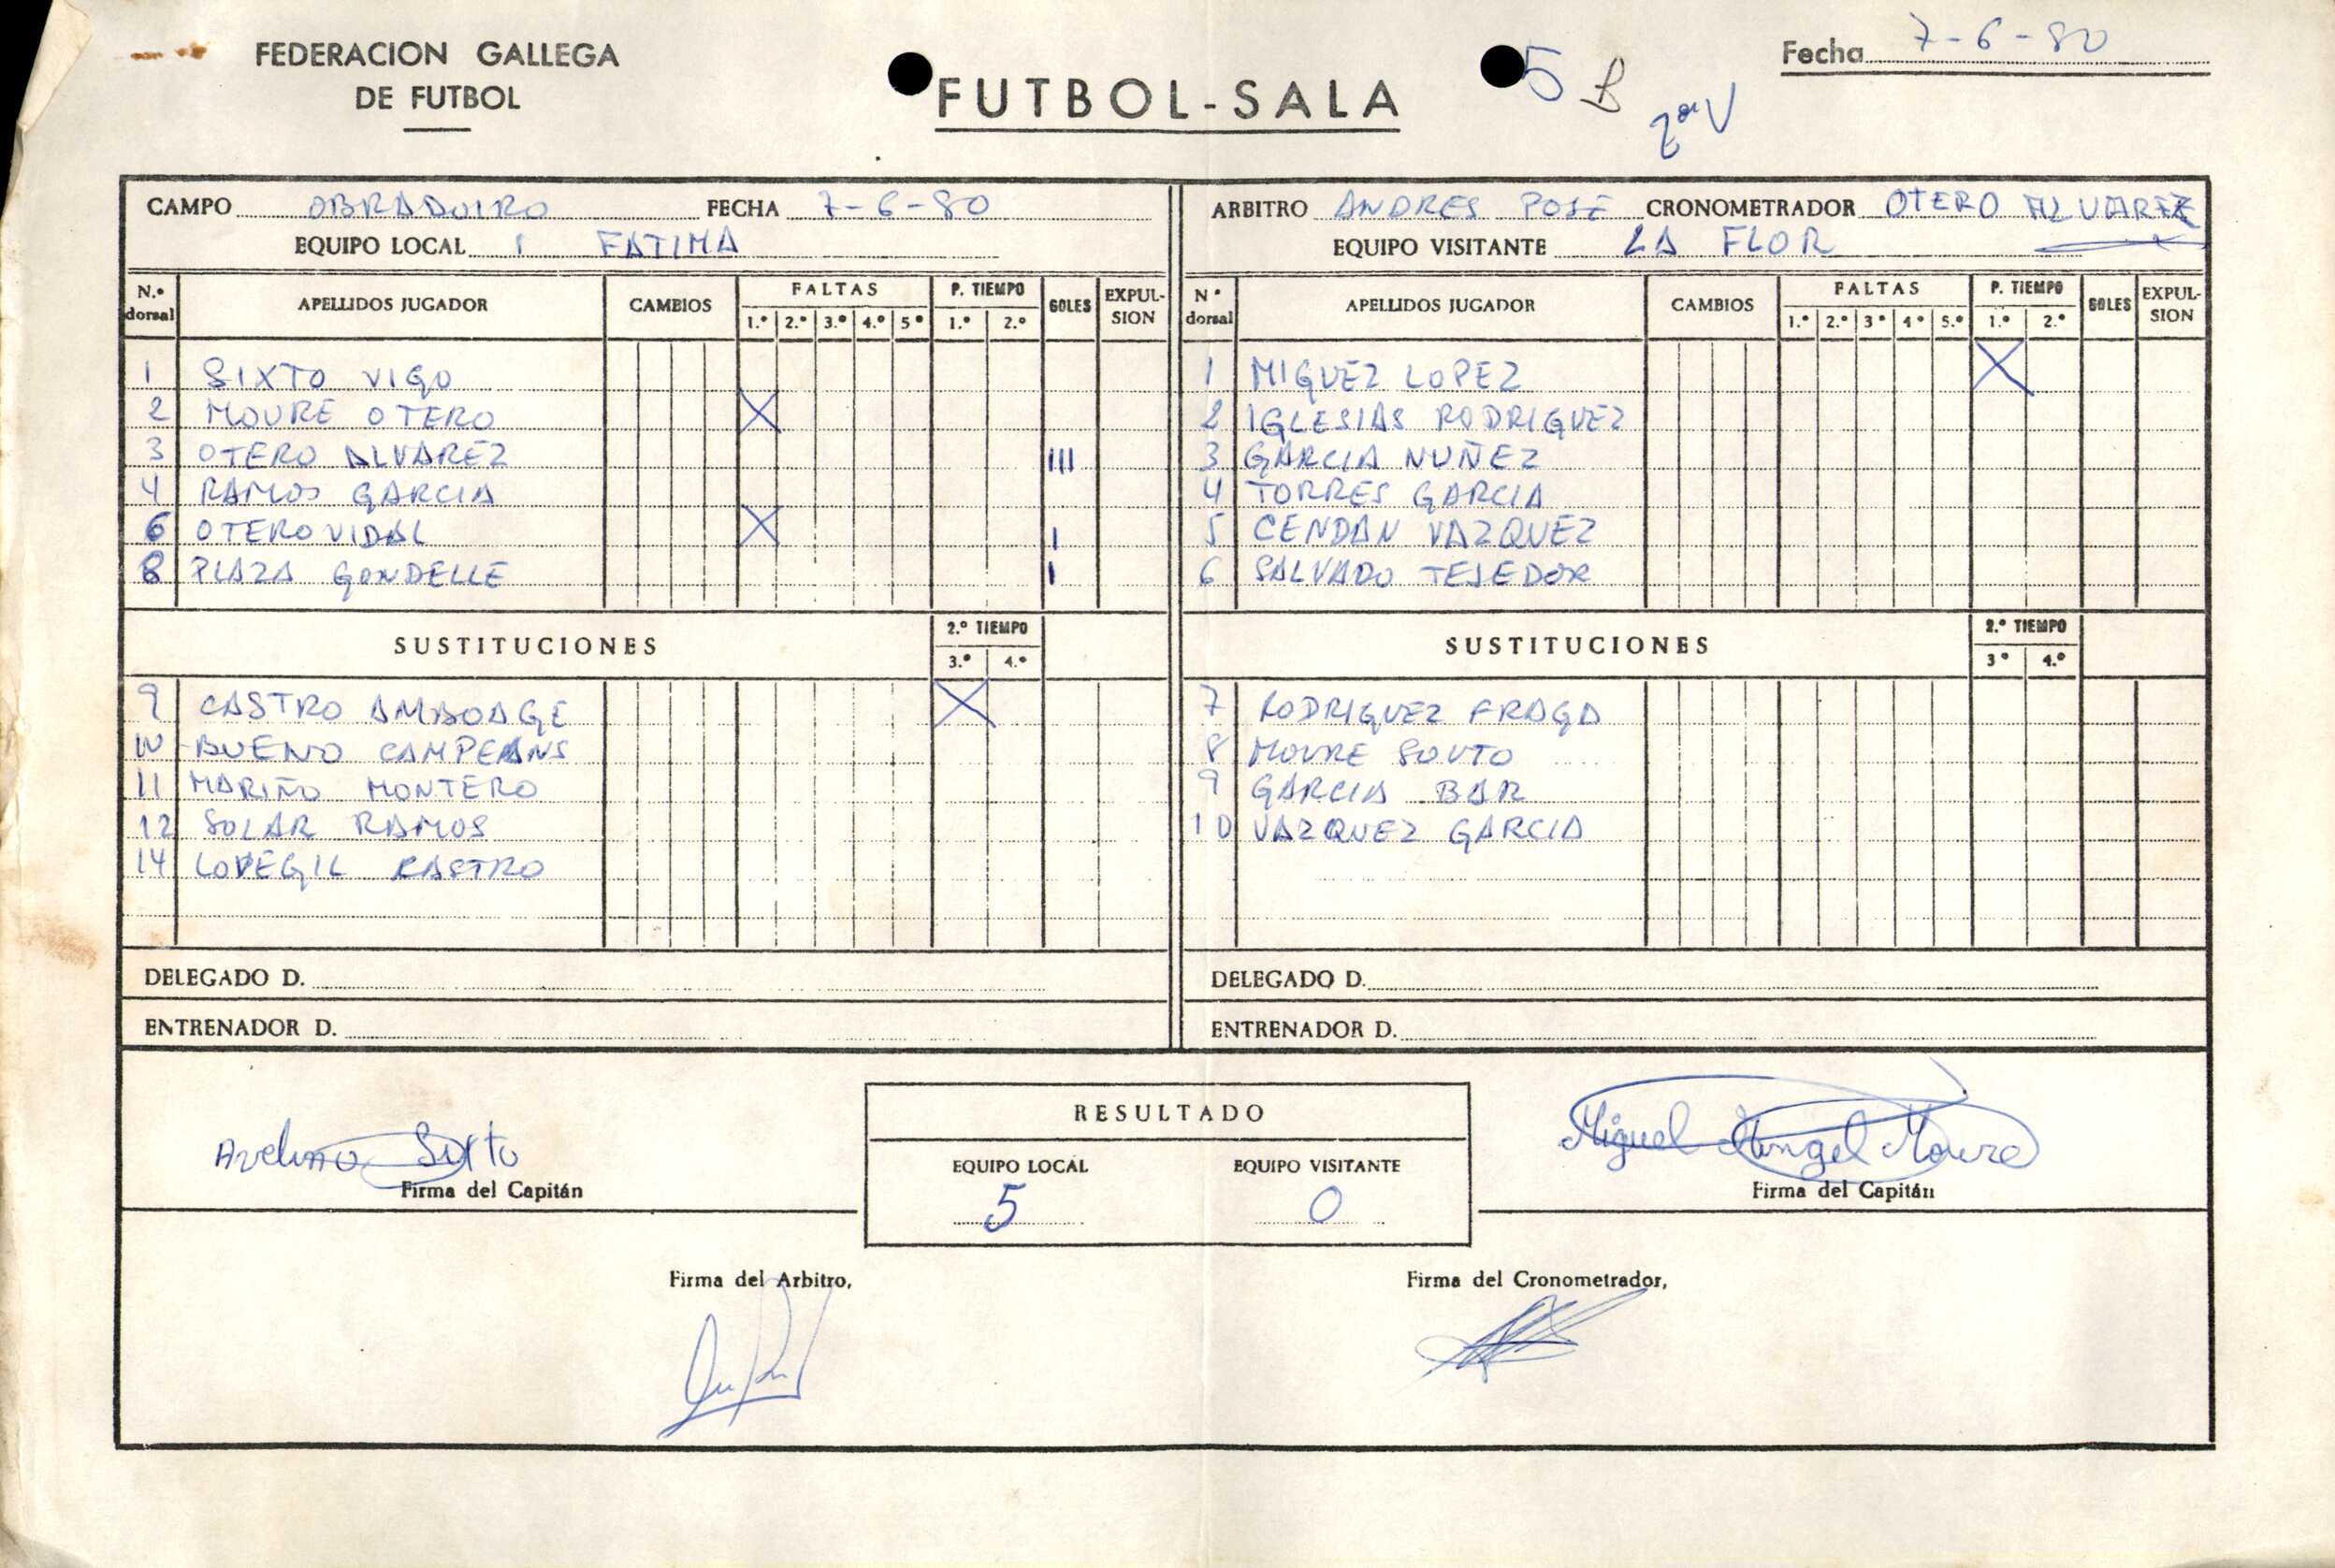 FEDERACION GALLEGA
DE FUTBOL
FUTBOL-SALA
5 B
Fecha 7-6-80
CAMPO OBRADOIRO FECHA 7-6-80
EQUIPO LOCAL FATIMA
ARBITRO ANDRES POSE CRONOMETRADOR OTERO ALVAREZ
EQUIPO VISITANTE LA FLOR
N.º dorsal APELLIDOS JUGADOR CAMBIOS FALTAS P. TIEMPO GOLES EXPULSION
1.º 2.º 3.º 4.º 5º 1.º 2.º
1 SIXTO VIGO
2 MOURE OTERO X
3 OTERO ALVAREZ III
4 RAMOS GARCIA
6 OTERO VIDAL X I
8 PLAZA GONDELLE I
SUSTITUCIONES 2.º TIEMPO
3.º 4.º
9 CASTRO AMBOAGE X
10 BUENO CAMPEANS
11 MARIÑO MONTERO
12 SOLAR RAMOS
14 LOPEGIL CASTRO
DELEGADO D.
ENTRENADOR D.
Nº dorsal APELLIDOS JUGADOR CAMBIOS FALTAS P. TIEMPO GOLES EXPULSION
1.º 2.º 3º 4º 5.º 1.º 2.º
1 MIGUEZ LOPEZ X
2 IGLESIAS RODRIGUEZ
3 GARCIA NUÑEZ
4 TORRES GARCIA
5 CENDAN VAZQUEZ
6 SALVADO TEJEDOR
SUSTITUCIONES 2.º TIEMPO
3º 4.º
7 RODRIGUEZ FRAGA
8 MOURE SOUTO
9 GARCIA BAR
10 VAZQUEZ GARCIA
DELEGADO D.
ENTRENADOR D.
Avelino Sixto
Firma del Capitán
RESULTADO
EQUIPO LOCAL EQUIPO VISITANTE
5 0
Miguel Angel Moure
Firma del Capitán
Firma del Arbitro,
Firma del Cronometrador,